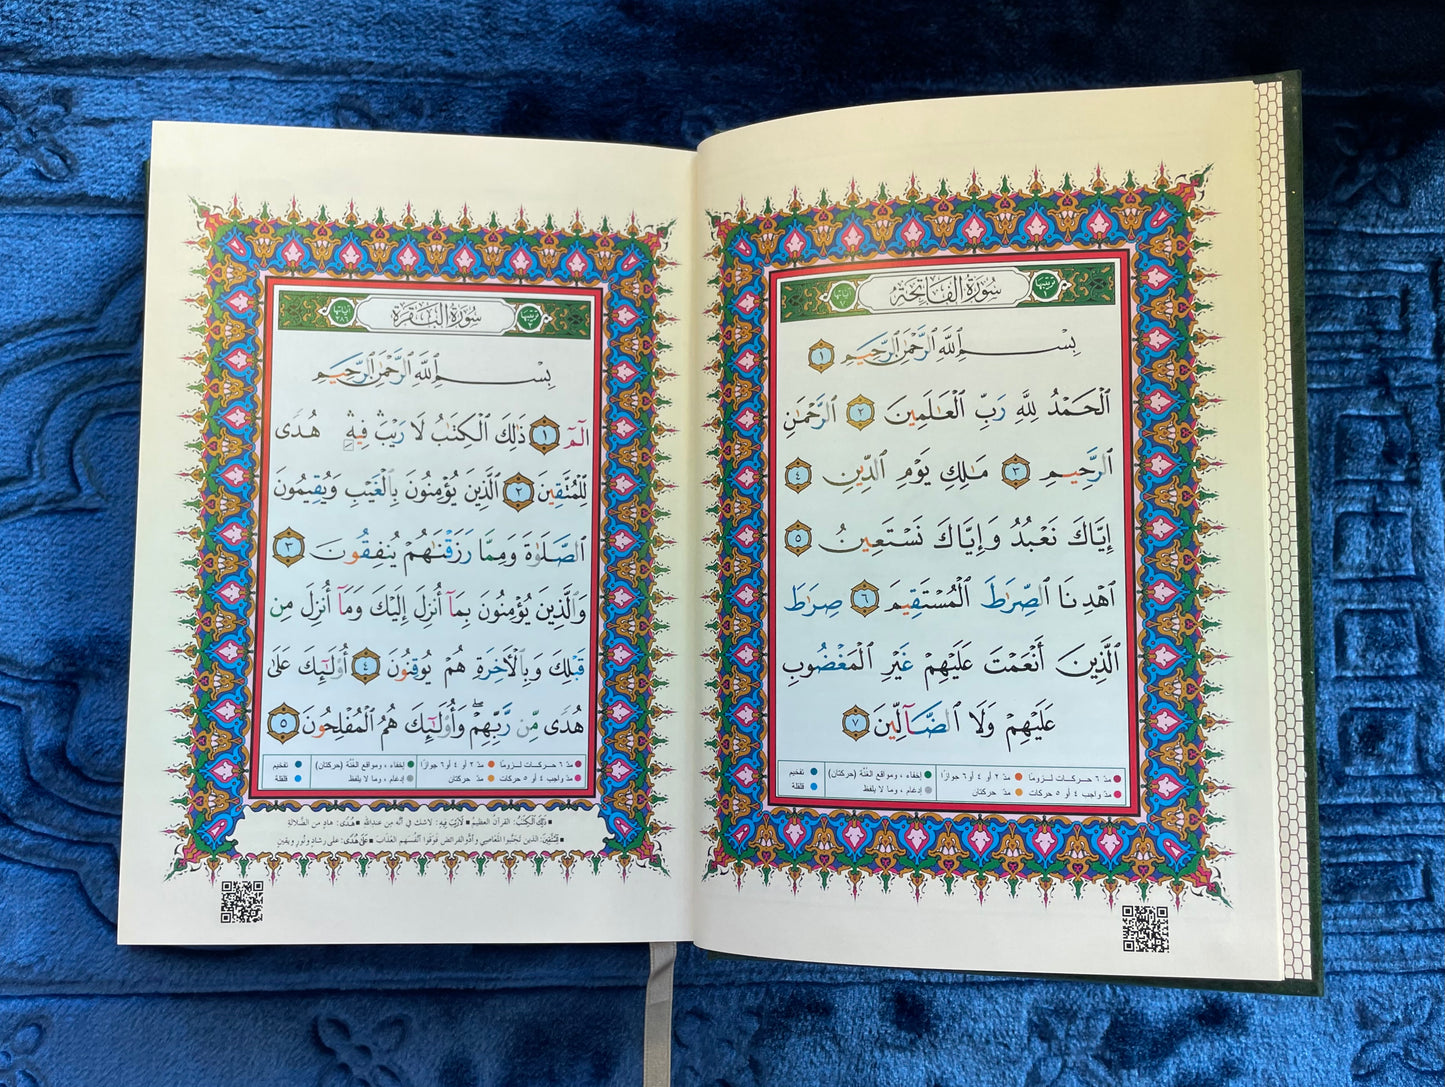 ترتيبها ١
سُورَةُ الْفَاتِحَةِ
آياتها ٧
بِسْمِ ٱللَّهِ ٱلرَّحْمَٰنِ ٱلرَّحِيمِ ١
ٱلْحَمْدُ لِلَّهِ رَبِّ ٱلْعَٰلَمِينَ ٢ ٱلرَّحْمَٰنِ
ٱلرَّحِيمِ ٣ مَٰلِكِ يَوْمِ ٱلدِّينِ ٤
إِيَّاكَ نَعْبُدُ وَإِيَّاكَ نَسْتَعِينُ ٥
ٱهْدِنَا ٱلصِّرَٰطَ ٱلْمُسْتَقِيمَ ٦ صِرَٰطَ
ٱلَّذِينَ أَنْعَمْتَ عَلَيْهِمْ غَيْرِ ٱلْمَغْضُوبِ
عَلَيْهِمْ وَلَا ٱلضَّآلِّينَ ٧
مدّ ٦ حركات لزومًا مدّ ٢ أو ٤ أو ٦ جوازًا إخفاء، ومواقع الغُنَّة (حركتان) تفخيم
مدّ واجب ٤ أو ٥ حركات مدّ حركتان إدغام، وما لا يلفظ قلقلة
ترتيبها ٢
سُورَةُ الْبَقَرَةِ
آياتها ٢٨٦
بِسْمِ ٱللَّهِ ٱلرَّحْمَٰنِ ٱلرَّحِيمِ
الٓمٓ ١ ذَٰلِكَ ٱلْكِتَٰبُ لَا رَيْبَۛ فِيهِۛ هُدًى
لِّلْمُتَّقِينَ ٢ ٱلَّذِينَ يُؤْمِنُونَ بِٱلْغَيْبِ وَيُقِيمُونَ
ٱلصَّلَوٰةَ وَمِمَّا رَزَقْنَٰهُمْ يُنفِقُونَ ٣
وَٱلَّذِينَ يُؤْمِنُونَ بِمَآ أُنزِلَ إِلَيْكَ وَمَآ أُنزِلَ مِن
قَبْلِكَ وَبِٱلْأَخِرَةِ هُمْ يُوقِنُونَ ٤ أُو۟لَٰٓئِكَ عَلَىٰ
هُدًى مِّن رَّبِّهِمْۖ وَأُو۟لَٰٓئِكَ هُمُ ٱلْمُفْلِحُونَ ٥
مدّ ٦ حركات لزومًا مدّ ٢ أو ٤ أو ٦ جوازًا إخفاء، ومواقع الغُنَّة (حركتان) تفخيم
مدّ واجب ٤ أو ٥ حركات مدّ حركتان إدغام، وما لا يلفظ قلقلة
ذَٰلِكَ الْكِتَٰبُ: القرآن العظيم لَا رَيْبَ فِيهِ: لا شك في أنه من عند الله هُدًى: هادٍ من الضلالة
لِلْمُتَّقِينَ: الذين تجنبوا المعاصي وأدّوا الفرائض فوقوا أنفسهم العذاب عَلَىٰ هُدًى: على رشاد ونور ويقين